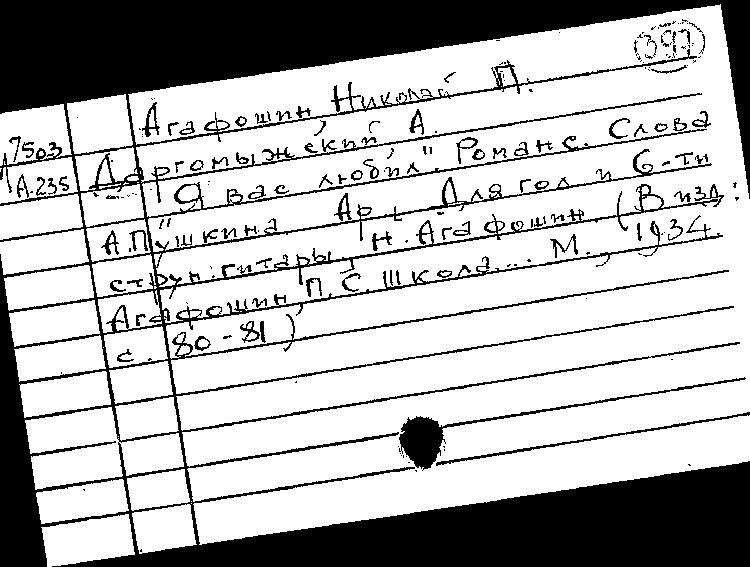 397
Агафошин, Николай П.
7503 Даргомыжский, А.
А.235 "Я вас любил". Романс. Слова
А.Пушкина Ар. Для гол и 6-ти
струн. гитары, Н. Агафошин. (В изд:
Агафошин, П.С. Школа... М., 1934.
с. 80-81)